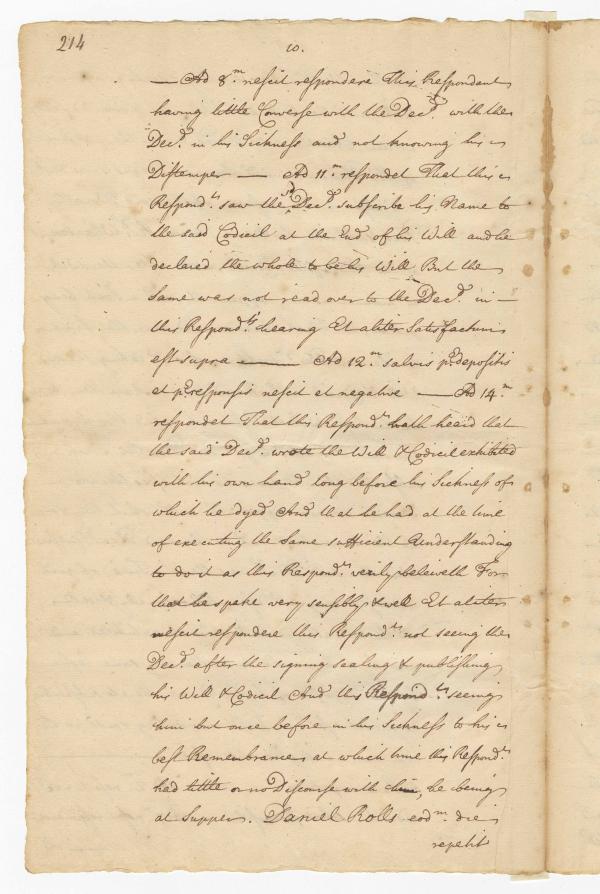 214
10.
— Ad 8.m nescit respondere This Respondent
having little Converse with the Decd. with the
Decd. in his Sickness and not knowing his
Distemper — Ad 11.m respondet That this
Respond.ts saw the sd. Decd. subscribe his Name to
the said Codicil at the End of his Will and he
declared the whole to be his Will But the
same was not read over to the Decd. in —
this Respond.ts hearing Et aliter Satisfactum
est supra — Ad 12.m salvis p. depositis
et p. responsis nescit et negative — Ad 14.m
respondet That this Respond.ts hath heard that
the said Decd. wrote the Will & Codicil exhibited
with his own hand long before his Sickness of
which he dyed And that he had at the time
of executing the same sufficient Understanding
to do it as this Respond.ts verily beleiveth For
that he spake very sensibly & well Et aliter
nescit respondere this Respond.ts not seeing the
Decd. after the signing sealing & publishing
his Will & Codicil And this Respond.ts seeing
him but once before in his Sickness to his
best Remembrance at which time this Respond.ts
had little or no Discourse with him, he being
at Supper. Daniel Rolls eodm. die
repetit